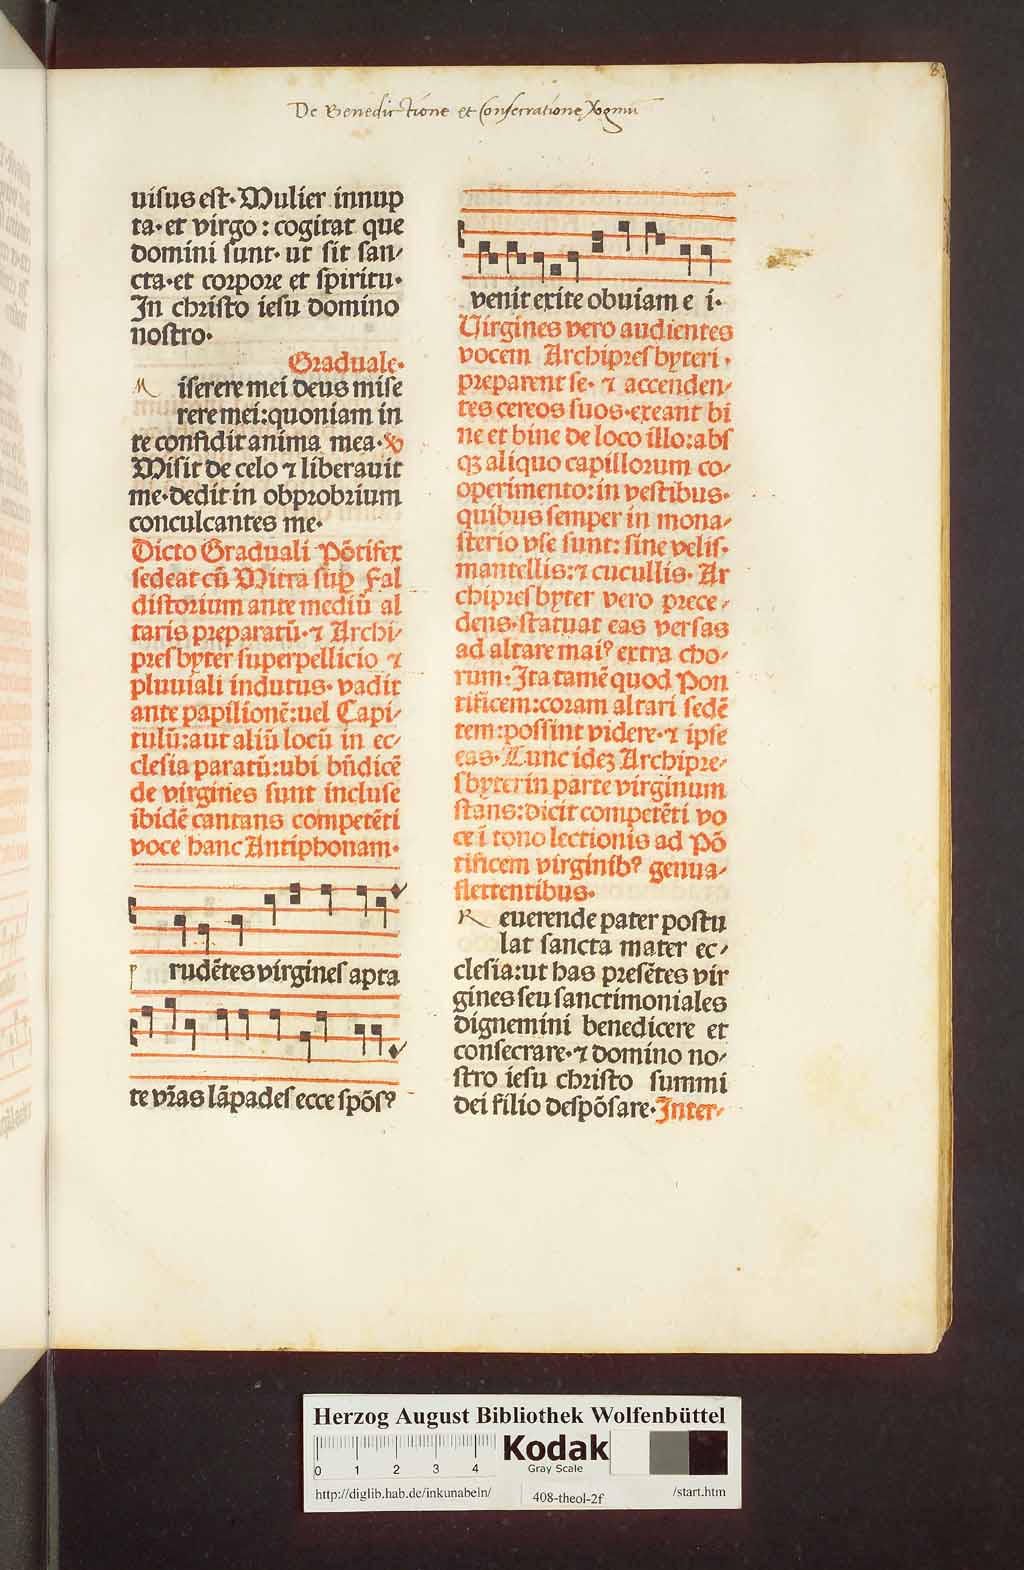 De Benedictione et Consecratione Virginū
uisus est. Mulier innup
ta. et virgo: cogitat que
domini sunt. ut sit san-
cta. et corpore et spiritu.
In christo iesu domino
nostro.
Graduale.
M iserere mei deus mise
rere mei: quoniam in
te confidit anima mea. ℣
Misit de celo ⁊ liberauit
me. dedit in obprobrium
conculcantes me.
Dicto Graduali Põtifex
sedeat cũ Mitra suꝑ Fal
distorium ante mediũ al
taris preparatũ. ⁊ Archi-
presbyter superpellicio ⁊
pluuiali indutus. vadit
ante papilionẽ: uel Capi-
tulũ: aut aliũ locũ in ec-
clesia paratũ: ubi bñdicẽ
de virgines sunt incluse
ibidẽ cantans competẽti
voce hanc Antiphonam.
P rudẽtes virgines apta
te vr̃as lãpades ecce spõsꝰ
venit exite obuiam e i.
Uirgines vero audientes
vocem Archipresbyteri.
preparent se. ⁊ accenden-
tes cereos suos. exeant bi
ne et bine de loco illo: abs
qꝫ aliquo capillorum co-
operimento: in vestibus.
quibus semper in mona-
sterio vse sunt: sine velis.
mantellis: ⁊ cucullis. Ar
chipresbyter vero prece-
dens. statuat eas versas
ad altare maiꝰ extra cho-
rum. Ita tamẽ quod Pon
tificem: coram altari sedẽ
tem: possint videre. ⁊ ipse
eas. Tunc ideꝫ Archipre-
sbyter in parte virginum
stans: dicit competẽti vo
ce ĩ tono lectionis ad Põ
tificem virginibꝰ genua-
flettentibus.
R euerende pater postu
lat sancta mater ec-
clesia: ut has presẽtes vir
gines seu sanctimoniales
dignemini benedicere et
consecrare. ⁊ domino no-
stro iesu christo summi
dei filio despõsare. Inter-
Herzog August Bibliothek Wolfenbüttel
0 1 2 3 4
Kodak
Gray Scale
http://diglib.hab.de/inkunabeln/
408-theol-2f
/start.htm